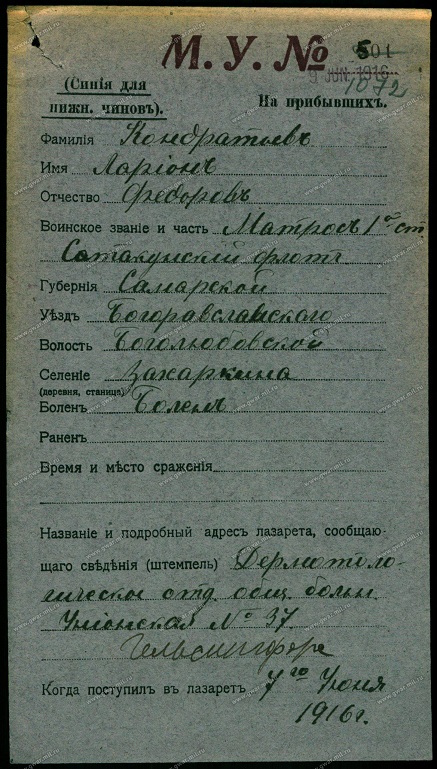 М. У. № 501
9 JUN. 1916
1072
(Синія для
нижн. чиновъ).
На прибывшихъ.
Фамилія Кондратьевъ
Имя Ларіонъ
Отчество Федоровъ
Воинское званіе и часть Матросъ 1ой ст.
Сатакунскій флотъ
Губернія Самарской
Уѣздъ Богорусланскаго
Волость Боголюбовской
Селеніе Захаркина
(деревня, станица)
Боленъ Боленъ
Раненъ
Время и мѣсто сраженія
Названіе и подробный адресъ лазарета, сообщаю-
щаго свѣдѣнія (штемпель) Дерматоло-
гическое отд. общ. больн.
Уніонская № 37
Гельсингфорс
Когда поступилъ въ лазаретъ 7го Іюня
1916 г.